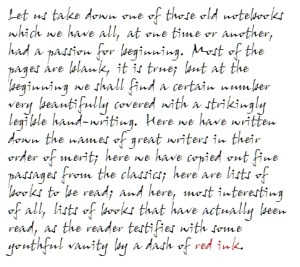 Let us take down one of those old notebooks
which we have all, at one time or another,
had a passion for beginning. Most of the
pages are blank, it is true; but at the
beginning we shall find a certain number
very beautifully covered with a strikingly
legible hand-writing. Here we have written
down the names of great writers in their
order of merit; here we have copied out fine
passages from the classics; here are lists of
books to be read; and here, most interesting
of all, lists of books that have actually been
read, as the reader testifies with some
youthful vanity by a dash of red ink.